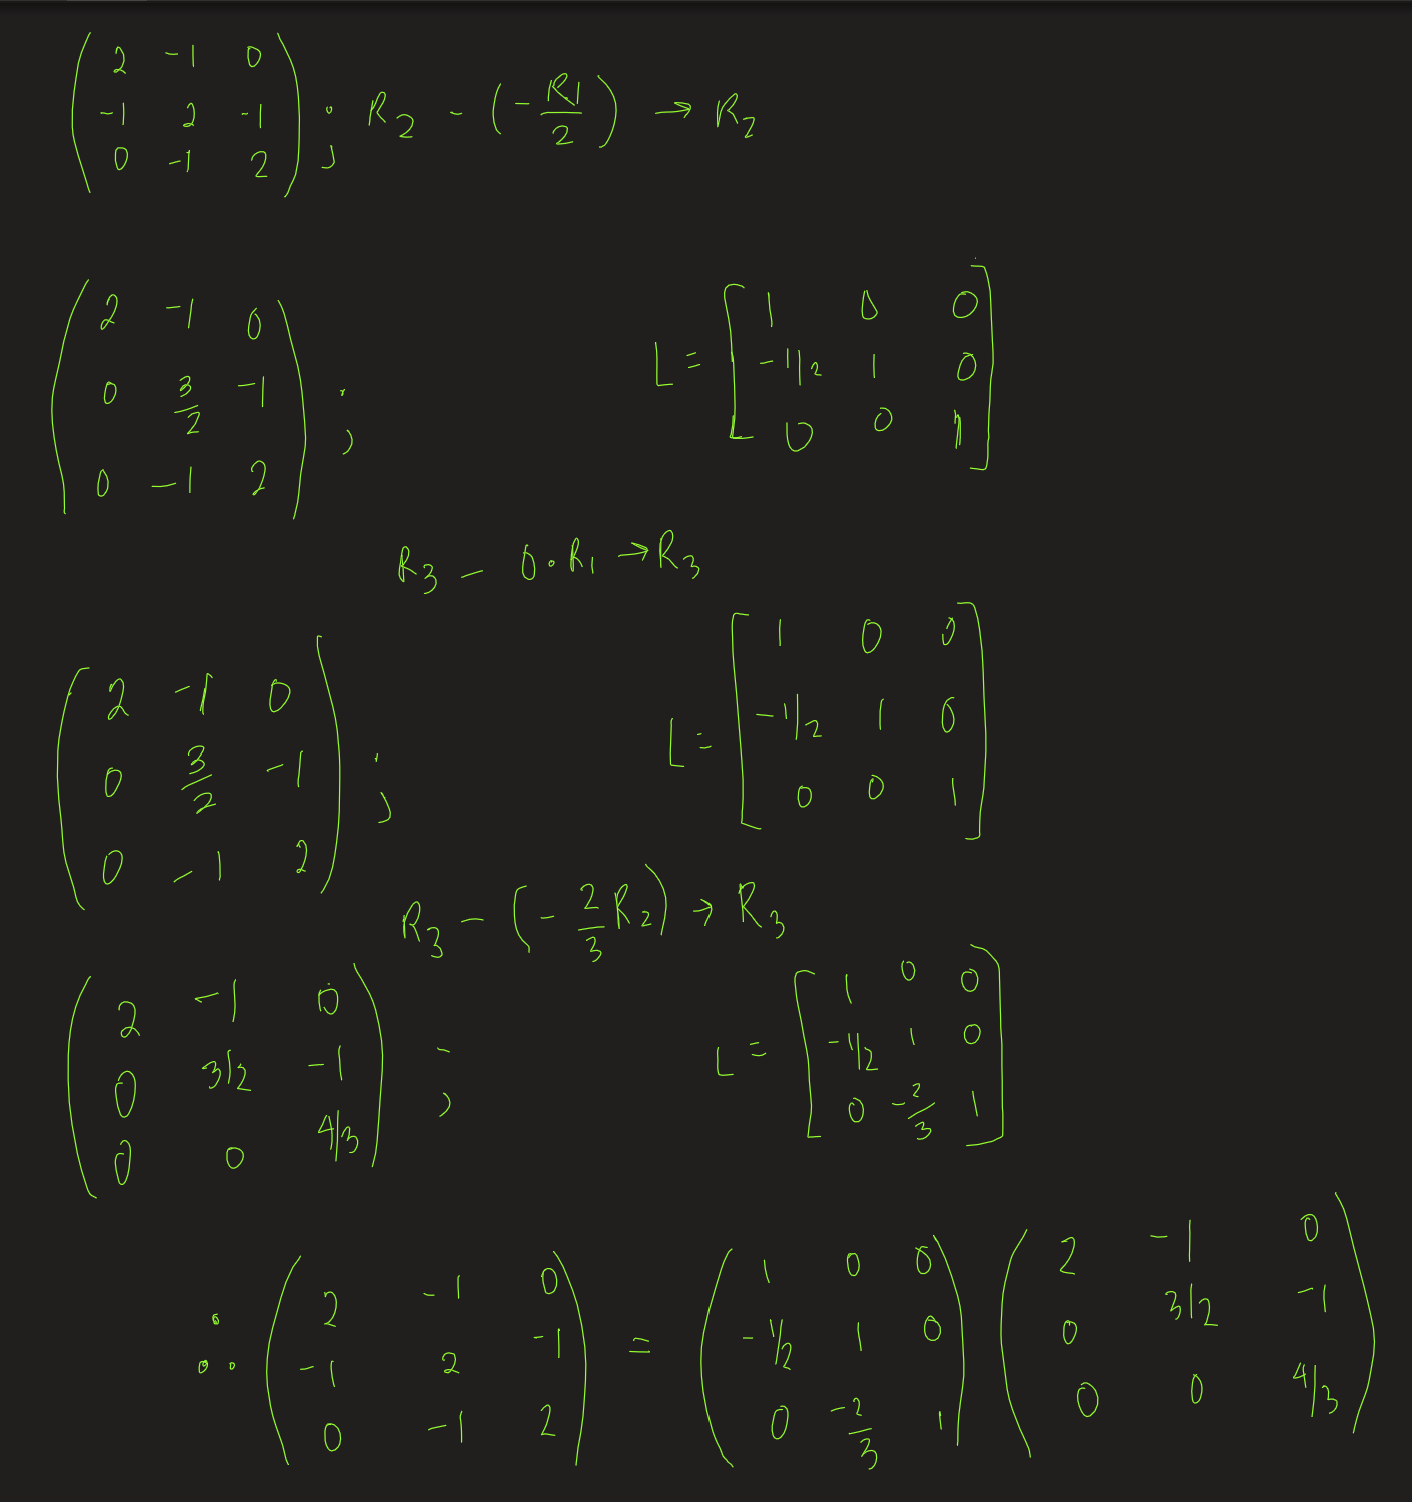 ( 2 -1 0
-1 2 -1
0 -1 2 ) ; R₂ - (-R₁/2) → R₂
( 2 -1 0
0 3/2 -1
0 -1 2 ) ;
L = [ 1 0 0
-1/2 1 0
0 0 1 ]
R₃ - 0·R₁ → R₃
( 2 -1 0
0 3/2 -1
0 -1 2 ) ;
L = [ 1 0 0
-1/2 1 0
0 0 1 ]
R₃ - (-2/3 R₂) → R₃
( 2 -1 0
0 3/2 -1
0 0 4/3 ) ;
L = [ 1 0 0
-1/2 1 0
0 -2/3 1 ]
∴ ( 2 -1 0
-1 2 -1
0 -1 2 ) =
( 1 0 0
-1/2 1 0
0 -2/3 1 )
( 2 -1 0
0 3/2 -1
0 0 4/3 )